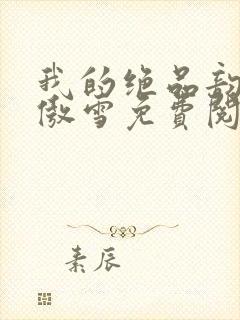 我的绝品
傲雪免费阅
素辰